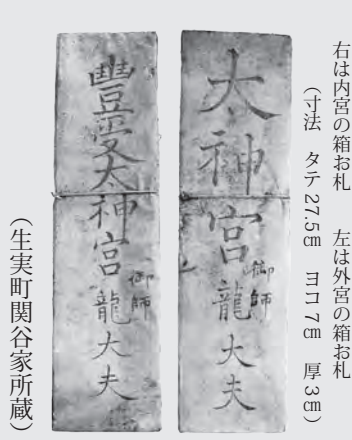 右は内宮の箱お札　左は外宮の箱お札
（寸法　タテ27.5㎝　ヨコ7㎝　厚3㎝）
太神宮
御師
龍大夫
豐受太神宮
御師
龍大夫
（生実町関谷家所蔵）